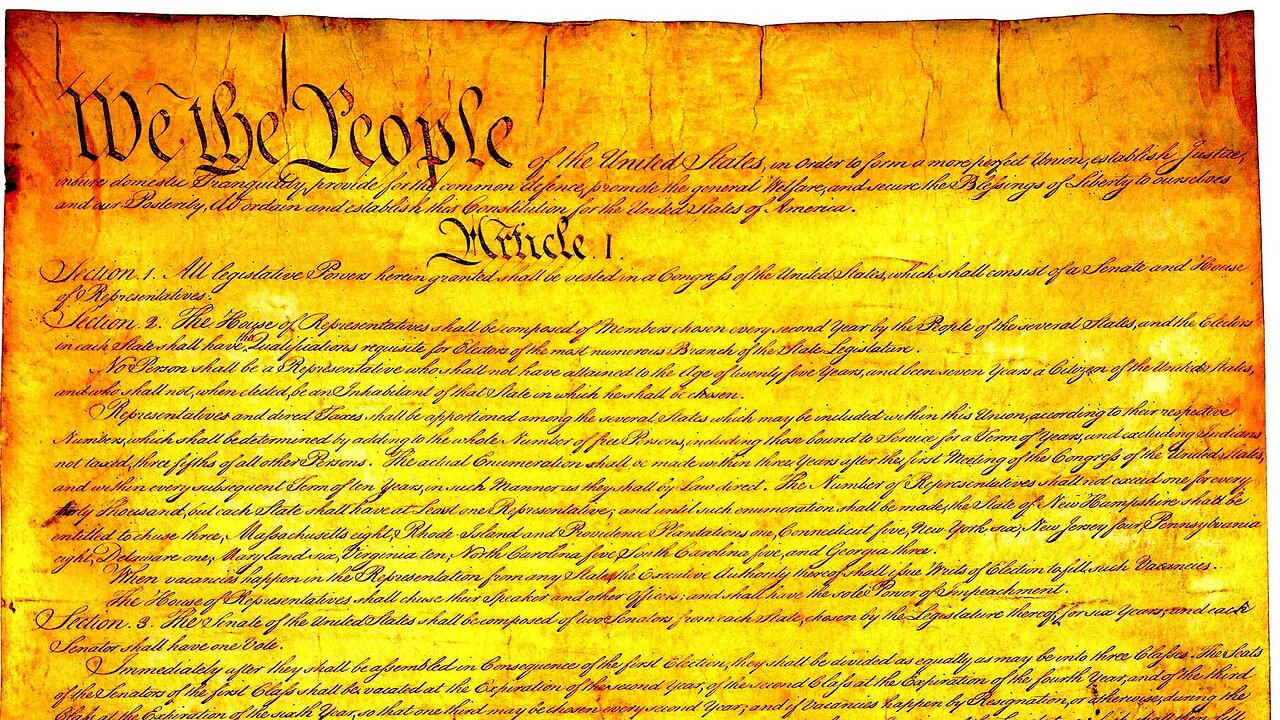 We the People of the United States, in Order to form a more perfect Union, establish Justice,
insure domestic Tranquility, provide for the common defence, promote the general Welfare, and secure the Blessings of Liberty to ourselves
and our Posterity, do ordain and establish this Constitution for the United States of America.
Article. I.
Section. 1. All legislative Powers herein granted shall be vested in a Congress of the United States, which shall consist of a Senate and House
of Representatives.
Section. 2. The House of Representatives shall be composed of Members chosen every second Year by the People of the several States, and the Electors
in each State shall have the Qualifications requisite for Electors of the most numerous Branch of the State Legislature.
No Person shall be a Representative who shall not have attained to the Age of twenty five Years, and been seven Years a Citizen of the United States,
and who shall not, when elected, be an Inhabitant of that State in which he shall be chosen.
Representatives and direct Taxes shall be apportioned among the several States which may be included within this Union, according to their respective
Numbers, which shall be determined by adding to the whole Number of free Persons, including those bound to Service for a Term of Years, and excluding Indians
not taxed, three fifths of all other Persons. The actual Enumeration shall be made within three Years after the first Meeting of the Congress of the United States,
and within every subsequent Term of ten Years, in such Manner as they shall by Law direct. The Number of Representatives shall not exceed one for every
thirty Thousand, but each State shall have at Least one Representative; and until such enumeration shall be made, the State of New Hampshire shall be
entitled to chuse three, Massachusetts eight, Rhode Island and Providence Plantations one, Connecticut five, New York six, New Jersey four, Pennsylvania
eight, Delaware one, Maryland six, Virginia ten, North Carolina five, South Carolina five, and Georgia three.
When vacancies happen in the Representation from any State, the Executive Authority thereof shall issue Writs of Election to fill such Vacancies.
The House of Representatives shall chuse their Speaker and other Officers; and shall have the sole Power of Impeachment.
Section. 3. The Senate of the United States shall be composed of two Senators from each State, chosen by the Legislature thereof, for six Years; and each
Senator shall have one Vote.
Immediately after they shall be assembled in Consequence of the first Election, they shall be divided as equally as may be into three Classes. The Seats
of the Senators of the first Class shall be vacated at the Expiration of the second Year, of the second Class at the Expiration of the fourth Year, and of the third
Class at the Expiration of the sixth Year, so that one third may be chosen every second Year; and if Vacancies happen by Resignation, or otherwise, during the